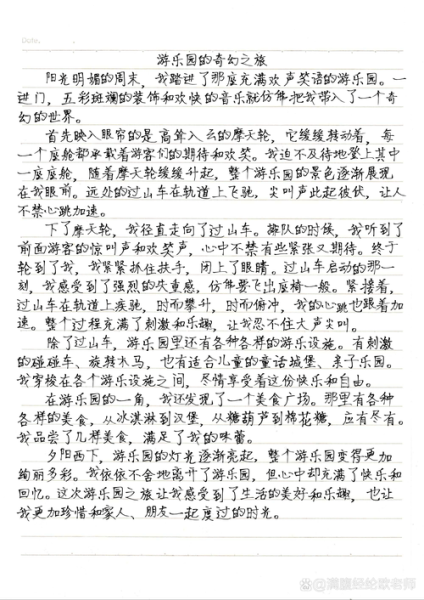 Date.
游乐园的奇幻之旅
阳光明媚的周末，我踏进了那座充满欢声笑语的游乐园。一
进门，五彩斑斓的装饰和欢快的音乐就仿佛把我带入了一个奇
幻的世界。
首先映入眼帘的是高耸入云的摩天轮，它缓缓转动着，每
一个座舱都承载着游客们的期待和欢笑。我迫不及待地登上其中
一座座舱，随着摩天轮缓缓升起，整个游乐园的景色逐渐展现
在我眼前。远处的过山车在轨道上飞驰，尖叫声此起彼伏，让人
不禁心跳加速。
下了摩天轮，我径直走向了过山车。排队的时候，我听到了
前面游客的惊叫声和欢笑声，心中不禁有些紧张又期待。终于
轮到了我，我紧紧抓住扶手，闭上了眼睛。过山车启动的那一
刻，我感受到了强烈的失重感，仿佛要飞出座椅一般。紧接着，
过山车在轨道上疾驰，时而攀升，时而俯冲，我的心跳也跟着加
速。整个过程充满了刺激和乐趣，让我忍不住大声尖叫。
除了过山车，游乐园里还有各种各样的游乐设施。有刺激
的碰碰车、旋转木马，也有适合儿童的童话城堡、亲子乐园。
我穿梭在各个游乐设施之间，尽情享受着这份快乐和自由。
在游乐园的一角，我还发现了一个美食广场。那里有各种
各样的美食，从冰淇淋到汉堡，从糖葫芦到棉花糖，应有尽有。
我品尝了几样美食，满足了我的味蕾。
夕阳西下，游乐园的灯光逐渐亮起，整个游乐园变得更加
绚丽多彩。我依依不舍地离开了游乐园，但心中却充满了快乐和
回忆。这次游乐园之旅让我感受到了生活的美好和乐趣，也让
我更加珍惜和家人、朋友一起度过的时光。
@满腹经纶歌老师